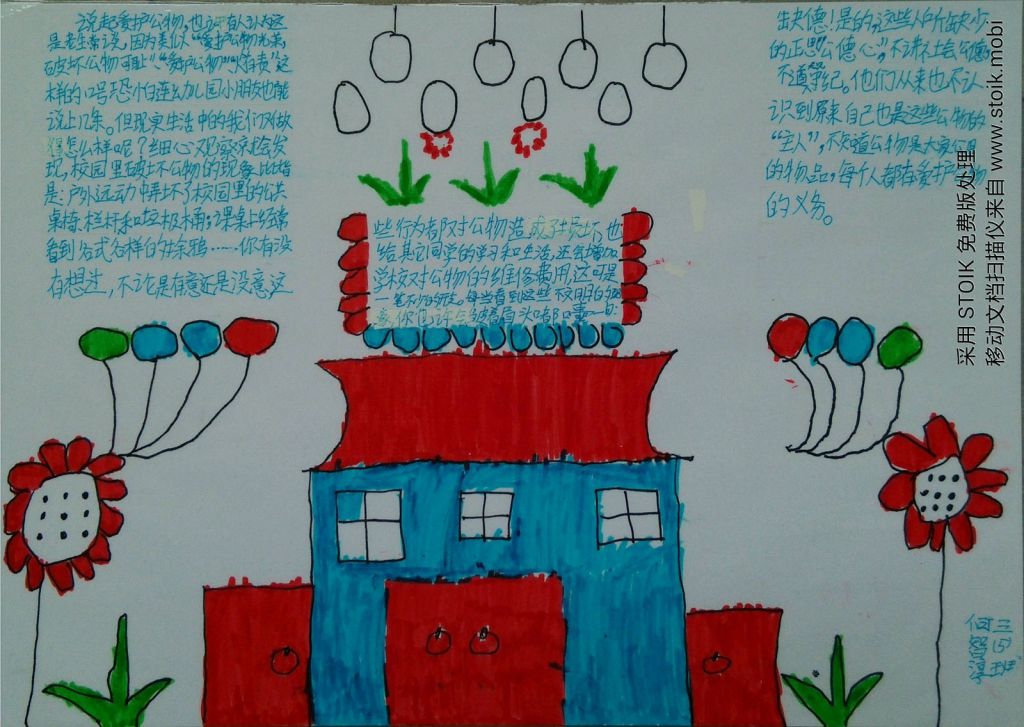 说起爱护公物,也许有人认为这
是老生常谈,因为类似“爱护公物光荣,
破坏公物可耻”“爱护公物”,“人人有责”这
样的口号恐怕连幼儿园小朋友也能
说上几条。但现实生活中的我们又做
得怎么样呢?细心观察就会发
现,校园里破坏公物的现象比比皆
是:户外运动中弄坏了校园里的公共
桌椅、栏杆和垃圾桶;课桌上经常
看到各式各样的涂鸦……你有没
有想过,不论是有意还是没意,这
些行为都对公物造成了损坏,也
给其它同学的学习和生活,还会增加
学校对公物的维修费用,这可是
一笔不少的开支。每当看到这些不文明的现
象,你也许会皱着眉头嘟囔一句:
缺德!是的,这些人所缺少
的正是“公德心”,不讲社会公德
不遵守纪。他们从来也不认
识到原来自己也是这些公物的
“主人”,不知道公物是大家公用
的物品,每个人都有爱护公物
的义务。
采用 STOIK 免费版处理
移动文档扫描仪来自 www.stoik.mobi
三(5)班
何智淳